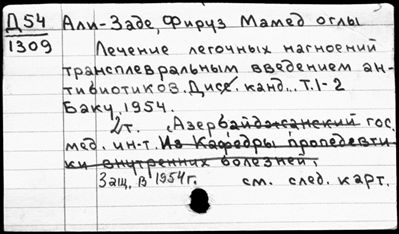 Д54 Али-Заде, Фируз Мамед оглы
1309
Лечение легочных нагноений
трансплевральным введением ан-
тибиотиков. Дисс. канд.. Т.1-2
Баку, 1954.
2т. Азербайджанский гос.
мед. ин-т. Из Кафедры пропедевти-
ки внутренних болезней.
Защ. в 1954г. см. след. карт.